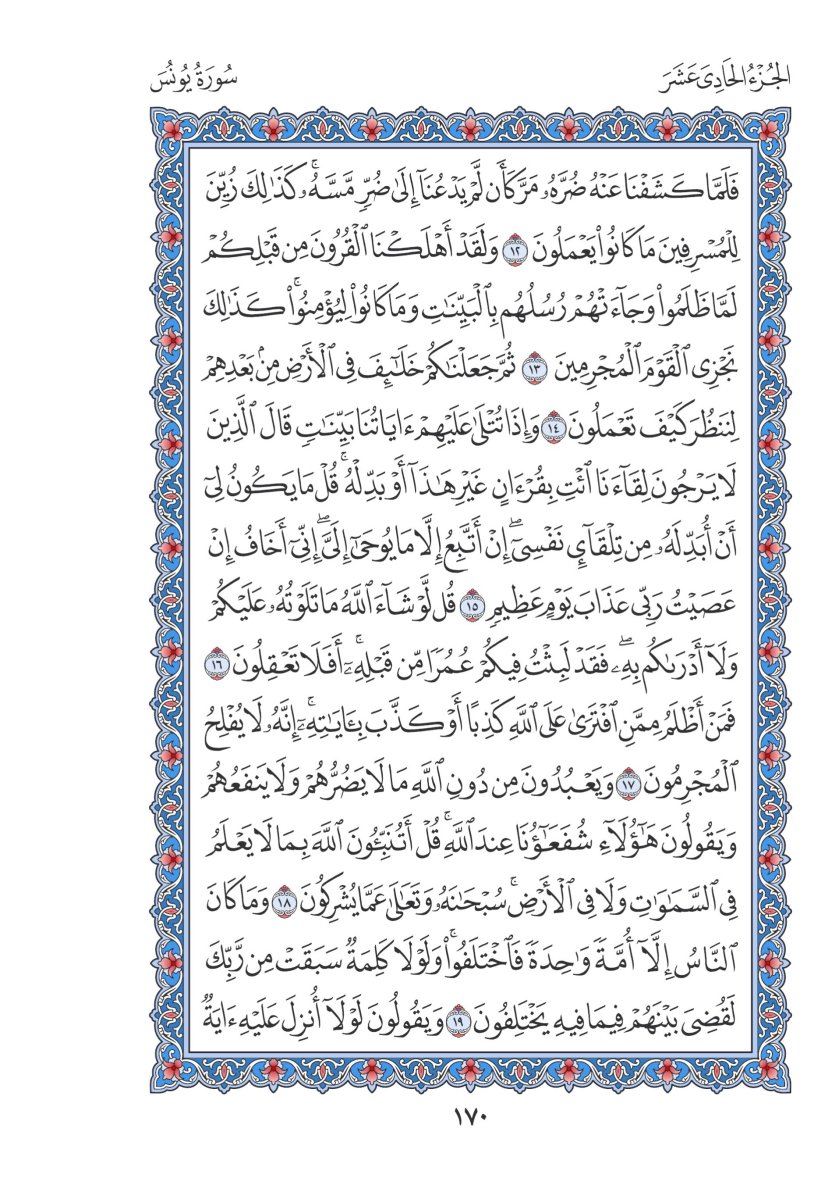 الجُزْءُ الحَادِى عَشَرَ
سُورَةُ يُونُسَ
فَلَمَّا كَشَفْنَا عَنْهُ ضُرَّهُۥ مَرَّ كَأَن لَّمْ يَدْعُنَآ إِلَىٰ ضُرٍّ مَّسَّهُۥۚ كَذَٰلِكَ زُيِّنَ
لِلْمُسْرِفِينَ مَا كَانُوا۟ يَعْمَلُونَ ١٢ وَلَقَدْ أَهْلَكْنَا ٱلْقُرُونَ مِن قَبْلِكُمْ
لَمَّا ظَلَمُوا۟ وَجَآءَتْهُمْ رُسُلُهُم بِٱلْبَيِّنَٰتِ وَمَا كَانُوا۟ لِيُؤْمِنُوا۟ۚ كَذَٰلِكَ
نَجْزِى ٱلْقَوْمَ ٱلْمُجْرِمِينَ ١٣ ثُمَّ جَعَلْنَٰكُمْ خَلَٰٓئِفَ فِى ٱلْأَرْضِ مِنۢ بَعْدِهِمْ
لِنَنظُرَ كَيْفَ تَعْمَلُونَ ١٤ وَإِذَا تُتْلَىٰ عَلَيْهِمْ ءَايَاتُنَا بَيِّنَٰتٍ قَالَ ٱلَّذِينَ
لَا يَرْجُونَ لِقَآءَنَا ٱئْتِ بِقُرْءَانٍ غَيْرِ هَٰذَآ أَوْ بَدِّلْهُۚ قُلْ مَا يَكُونُ لِىٓ
أَنْ أُبَدِّلَهُۥ مِن تِلْقَآئِ نَفْسِىٓۖ إِنْ أَتَّبِعُ إِلَّا مَا يُوحَىٰٓ إِلَىَّۖ إِنِّىٓ أَخَافُ إِنْ
عَصَيْتُ رَبِّى عَذَابَ يَوْمٍ عَظِيمٍ ١٥ قُل لَّوْ شَآءَ ٱللَّهُ مَا تَلَوْتُهُۥ عَلَيْكُمْ
وَلَآ أَدْرَىٰكُم بِهِۦۖ فَقَدْ لَبِثْتُ فِيكُمْ عُمُرًا مِّن قَبْلِهِۦٓۚ أَفَلَا تَعْقِلُونَ ١٦
فَمَنْ أَظْلَمُ مِمَّنِ ٱفْتَرَىٰ عَلَى ٱللَّهِ كَذِبًا أَوْ كَذَّبَ بِـَٔايَٰتِهِۦٓۚ إِنَّهُۥ لَا يُفْلِحُ
ٱلْمُجْرِمُونَ ١٧ وَيَعْبُدُونَ مِن دُونِ ٱللَّهِ مَا لَا يَضُرُّهُمْ وَلَا يَنفَعُهُمْ
وَيَقُولُونَ هَٰٓؤُلَآءِ شُفَعَٰٓؤُنَا عِندَ ٱللَّهِۚ قُلْ أَتُنَبِّـُٔونَ ٱللَّهَ بِمَا لَا يَعْلَمُ
فِى ٱلسَّمَٰوَٰتِ وَلَا فِى ٱلْأَرْضِۚ سُبْحَٰنَهُۥ وَتَعَٰلَىٰ عَمَّا يُشْرِكُونَ ١٨ وَمَا كَانَ
ٱلنَّاسُ إِلَّآ أُمَّةً وَٰحِدَةً فَٱخْتَلَفُوا۟ۚ وَلَوْلَا كَلِمَةٌ سَبَقَتْ مِن رَّبِّكَ
لَقُضِىَ بَيْنَهُمْ فِيمَا فِيهِ يَخْتَلِفُونَ ١٩ وَيَقُولُونَ لَوْلَآ أُنزِلَ عَلَيْهِ ءَايَةٌ
١٧٠